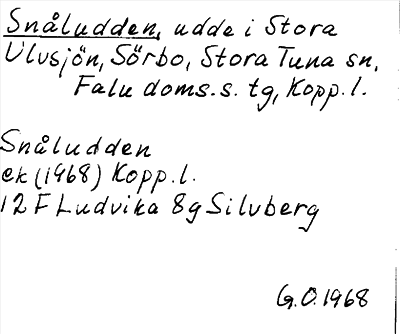 Snåludden, udde i Stora
Ulvsjön, Sörbo, Stora Tuna sn,
Falu doms.s. tg, Kopp.l.
Snåludden
ek (1968) Kopp.l.
12F Ludvika 8g Silvberg
G.O. 1968